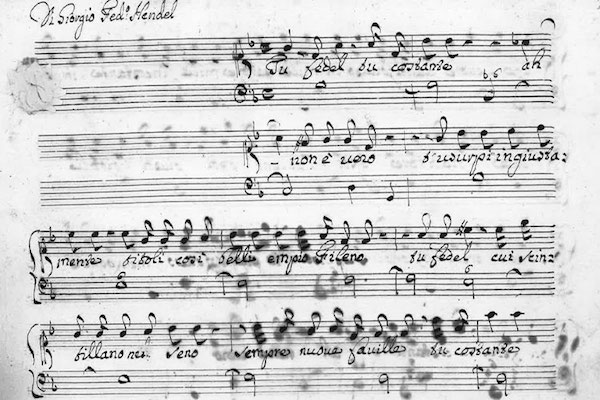 Di Giorgio Fed.º Hendel
Tu fedel tu costante ah
non è vero t'usurpi ingiusta:
mente titoli così belli empio Fileno tu fedel cui scin:
tillano nel seno sempre nuove faville tu costante